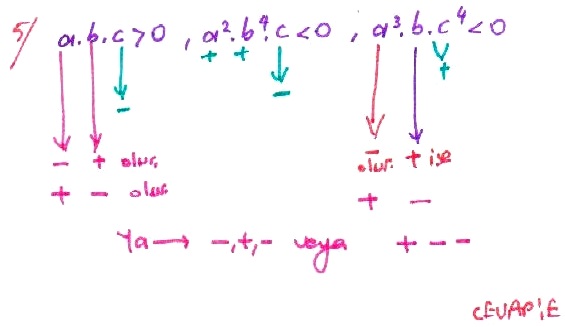 5/ a.b.c>0 , a².b⁴.c<0 , a³.b.c⁴<0
+ + +
- -
- + olur. - olur. + ise
+ - olur + -
Ya → -,+,- veya + - -
CEVAP:E